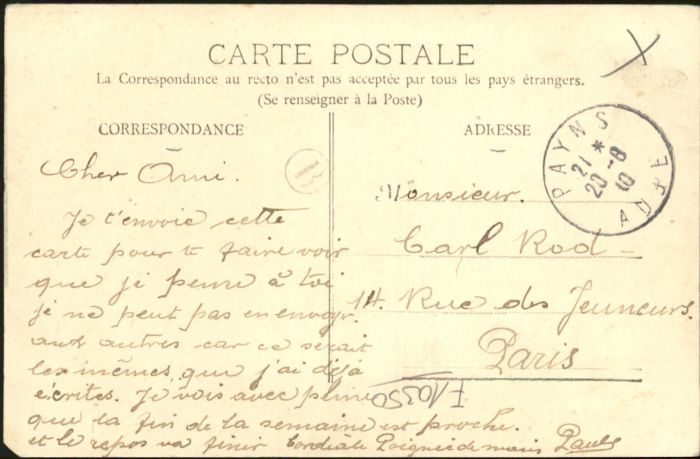 CARTE POSTALE
La Correspondance au recto n'est pas acceptée par tous les pays étrangers.
(Se renseigner à la Poste)
CORRESPONDANCE
Cher Ami.
Je t'envoie cette
carte pour te faire voir
que je pense à toi
je ne peut pas en envoyr
aux autres car ce serait
les mêmes que j'ai déjà
écrites. Je vois avec plaine
que la fin de la semaine est proche.
et le repos va finir Cordiale Poignée de main Paul
ADRESSE
Monsieur.
Carl Rod
14 Rue des Jeuneurs.
Paris
PAYNS
21 *
20-8
10
AUBE
F10350